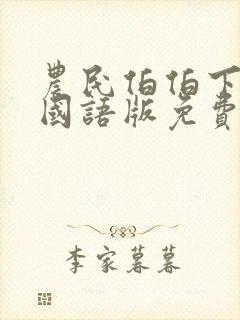 農民伯伯下
國語版免費
李家暮暮